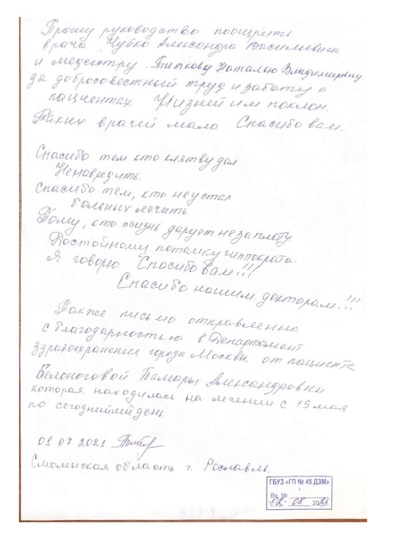 Прошу руководство поощрить
врача Чубко Александра Васильевича
и медсестру Наталью Владимировну
за добросовестный труд и заботу о
пациентах. Низкий им поклон.
Таких врачей мало Спасибо вам.
Спасибо тем кто клятву дал
Ненавредить.
Спасибо тем, кто не устал
больных лечить
Тому, кто жизнь дарует не за плату
Достойному потомку гиппократа.
Я говорю Спасибо Вам!!!
Спасибо нашим докторам!!!
Также письмо отправленно
с благодарностью в Департамент
Здравоохранении города Москвы от пациента
Белоноговой Тамары Александровны
которая находилась на лечении с 15 мая
по сегодняшней день.
01 07 2021
Смоленская область г. Рославль.
ГБУЗ «ГП № 45 ДЗМ»
Вх. №